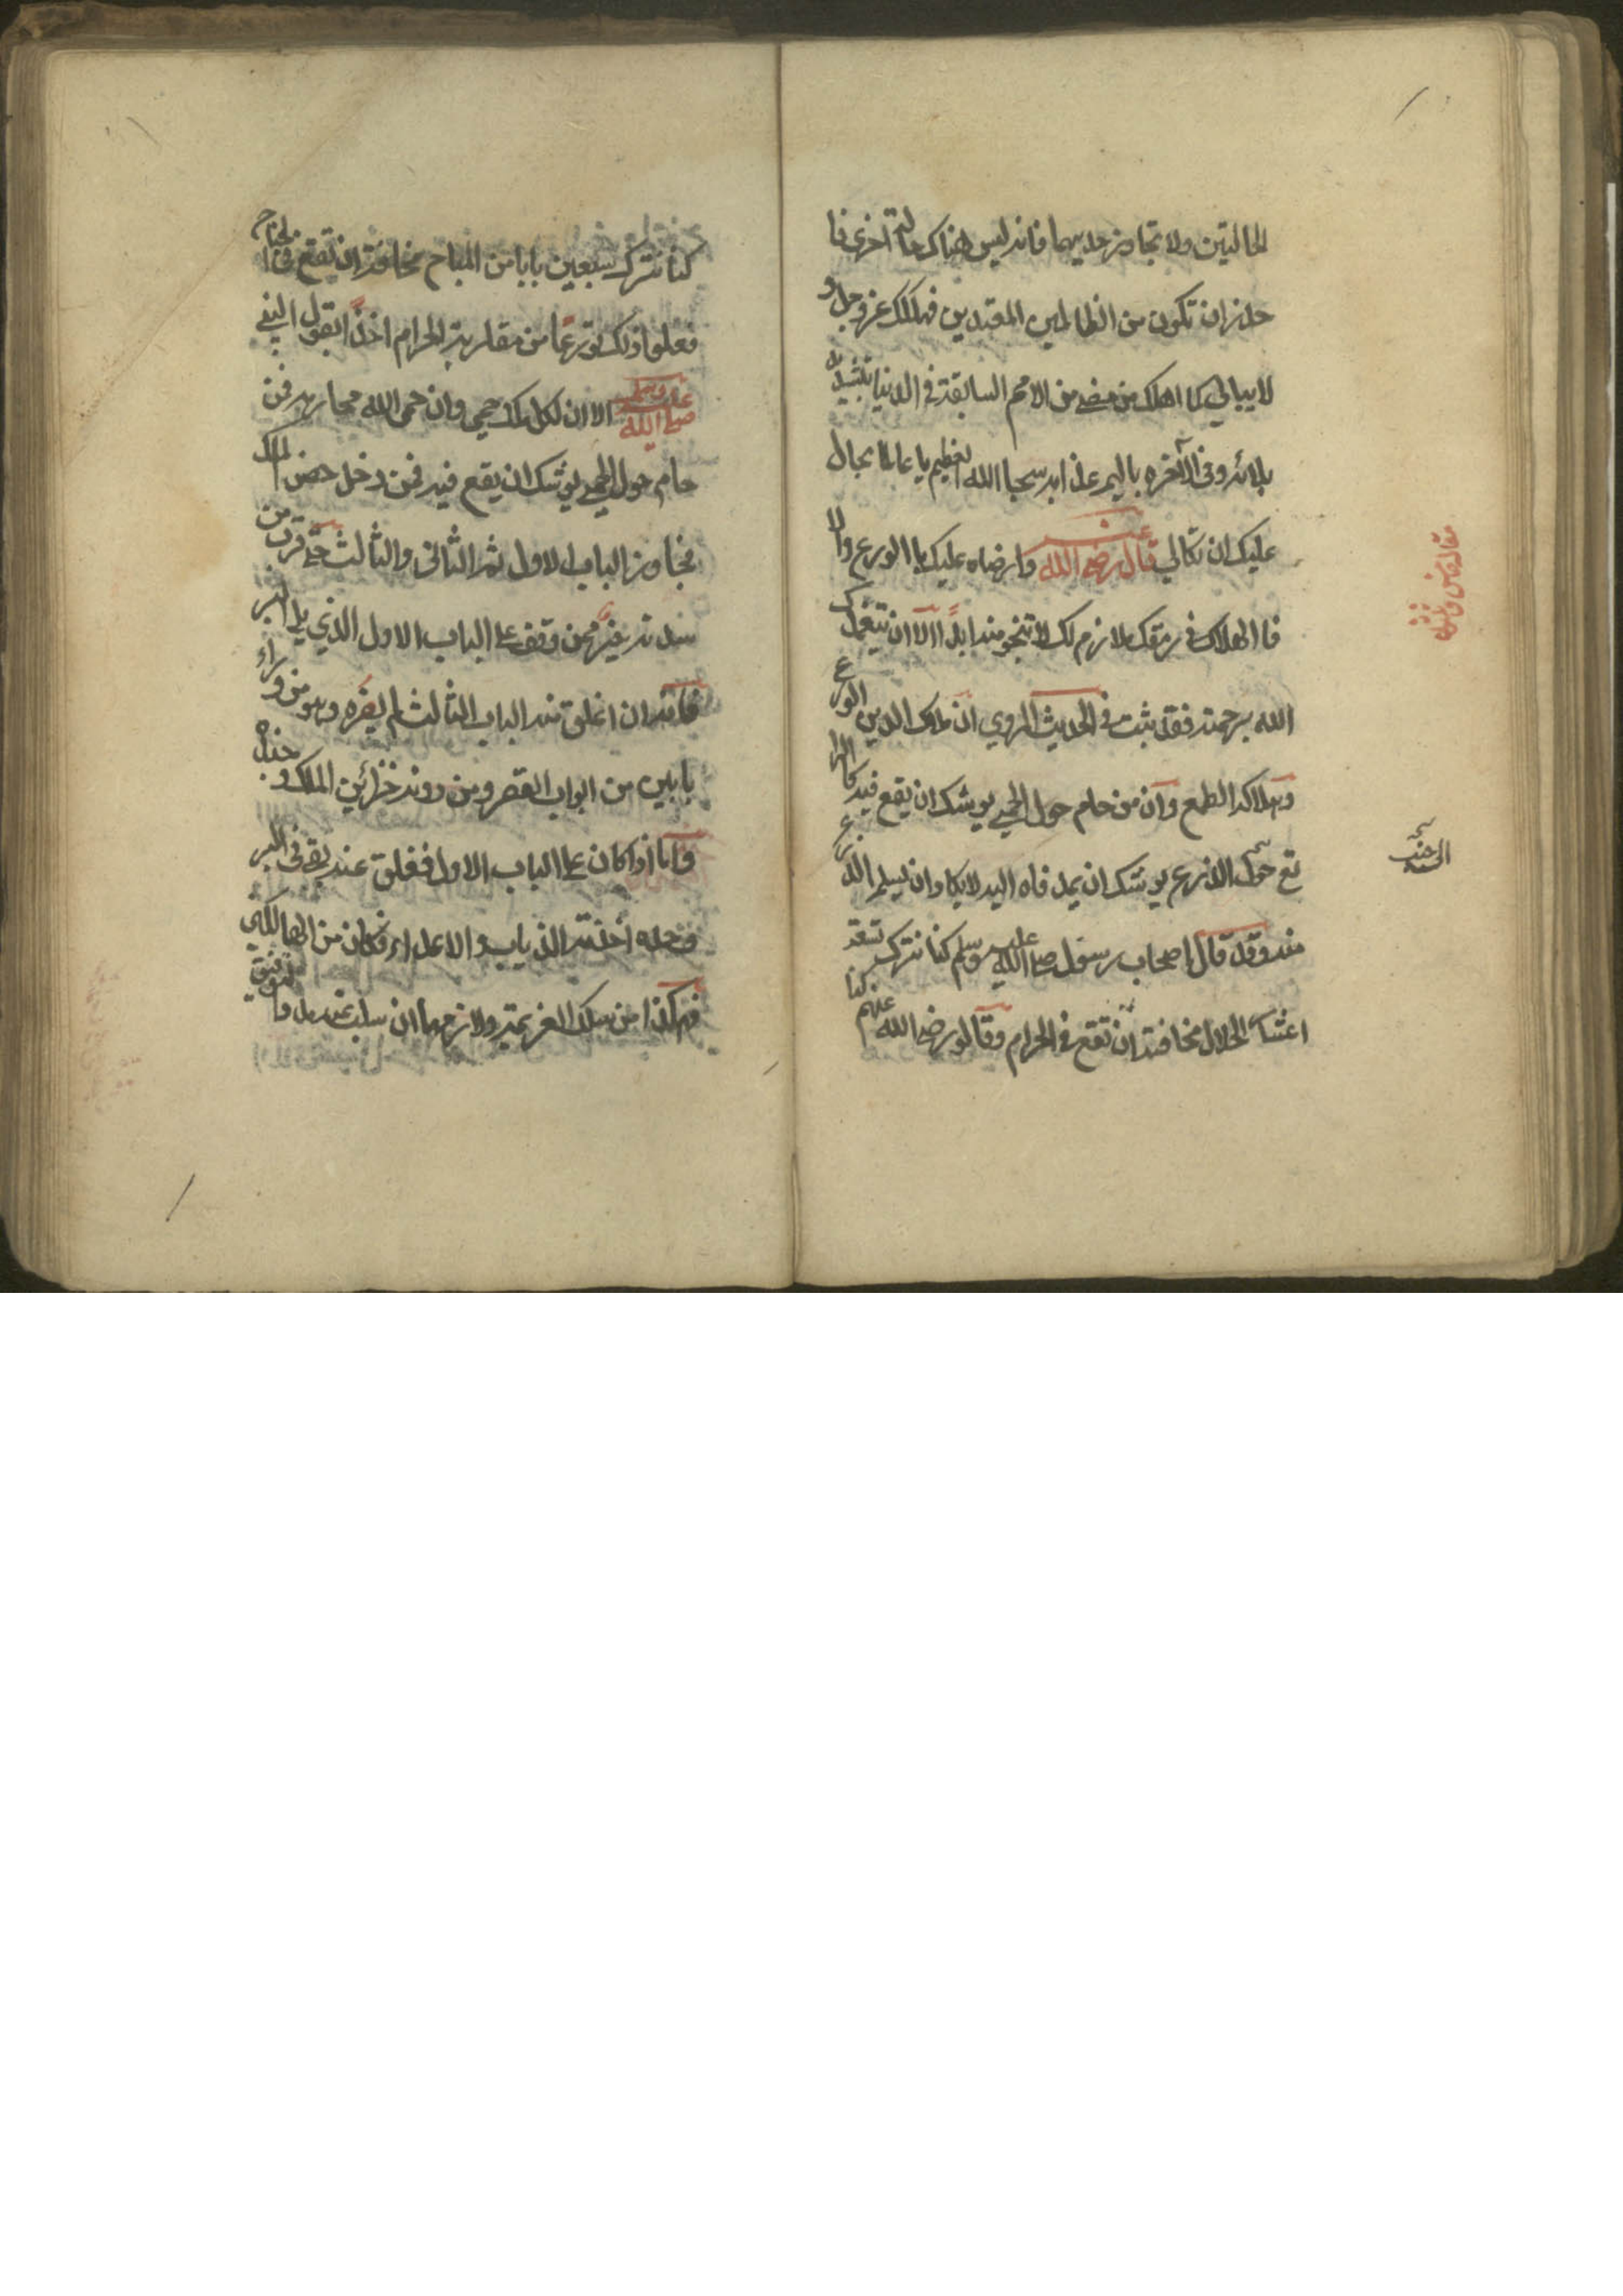 الحالتين ولا تجاوز حديهما فانه ليس هناك حالة اخرى فا
حذر ان تكون من الظالمين المعتدين فيهلكك عز وجل و
لا يبالي كما اهلك من مضى من الامم السابقة في الدنيا بتشديد
بلائه وفي الآخره باليم عذابه سبحان الله العظيم يا عالما بحالي
عليك اتكالي قال رضي الله عنه وارضاه عليك بالورع والا
فا الهلاك في ربقك ملازم لك لا تنجو منه ابدًا الا ان يتغمدك
الله برحمته فقد ثبت في الحديث المروي ان ملاك الدين الورع
وهلاكه الطمع وان من حام حول الحمى يوشك ان يقع فيه كالرا
تع حول الزرع يوشك ان يمد فاه اليه لا يكاد ان يسلم الزرع
منه وقد قال اصحاب رسول صلى الله عليه وسلم كنا نترك تسعة
اعشار الحلال مخافة ان نقع في الحرام وقالو رضي الله عنهم كنا
الى جنب
كنا نترك سبعين بابا من المباح مخافة ان نقع في الجناح
فعلوا ذلك تورعًا من مقاربة الحرام اخذًا بقول النبي
صلى الله عليه وسلم الا ان لكل ملك حمى وان حمى الله محارمه فمن
حام حول الحمى يوشك ان يقع فيه فمن دخل حصن الملك
فجاوز الباب الاول ثم الثاني والثالث حتى قرب من
سدته خير ممن وقف على الباب الاول الذي يلي البر
فانه ان اغلق عنه الباب الثالث لم يضره وهو من وراء
بابين من ابواب القصر ومن دونه خزائن الملك وجنده
واما اذا كان على الباب الاول فغلق عنه بقي في البر
وحده اخذته الذياب والاعداء فكان من الهالكين
فهكذا من سلك العزيمة ولازمها ان سلب عنه مدد التوفيق